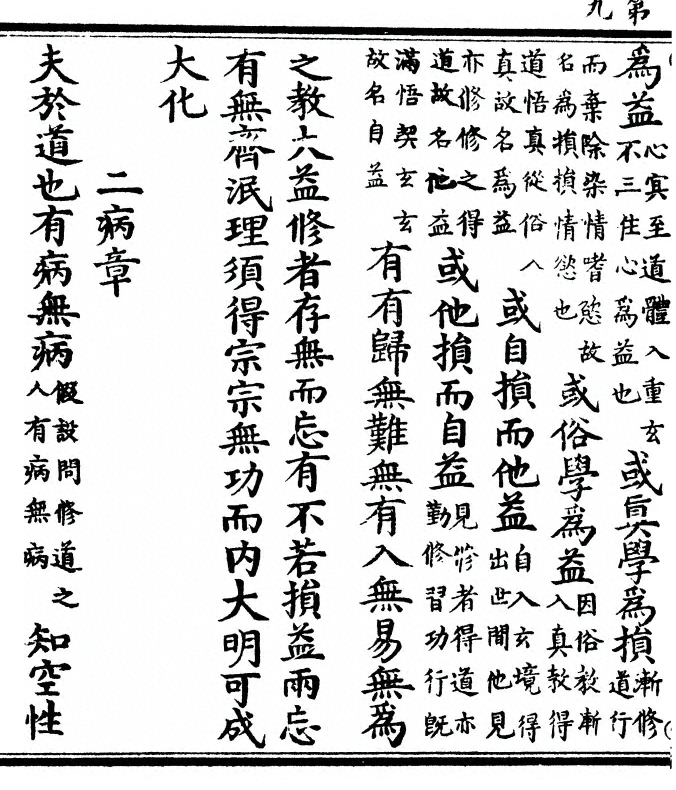 第九
為益心寞至道體入重玄不三住心為益也或真學為損漸修道行
而棄除染情嗜慾故名為損損情慾也或俗學為益因俗教漸入真教得
道悟真從俗入真故名為益或自損而他益自入玄境得出世間他見
亦修修之得道故名他益或他損而自益見修者得道亦勤修習功行既
滿悟契玄玄故名自益有有歸無難無有入無易無為
之教六益修者存無而忘有不若損益兩忘
有無齊泯理須得宗宗無功而内大明可成
大化
二病章
夫於道也有病無病假設問修道之人有病無病知空性